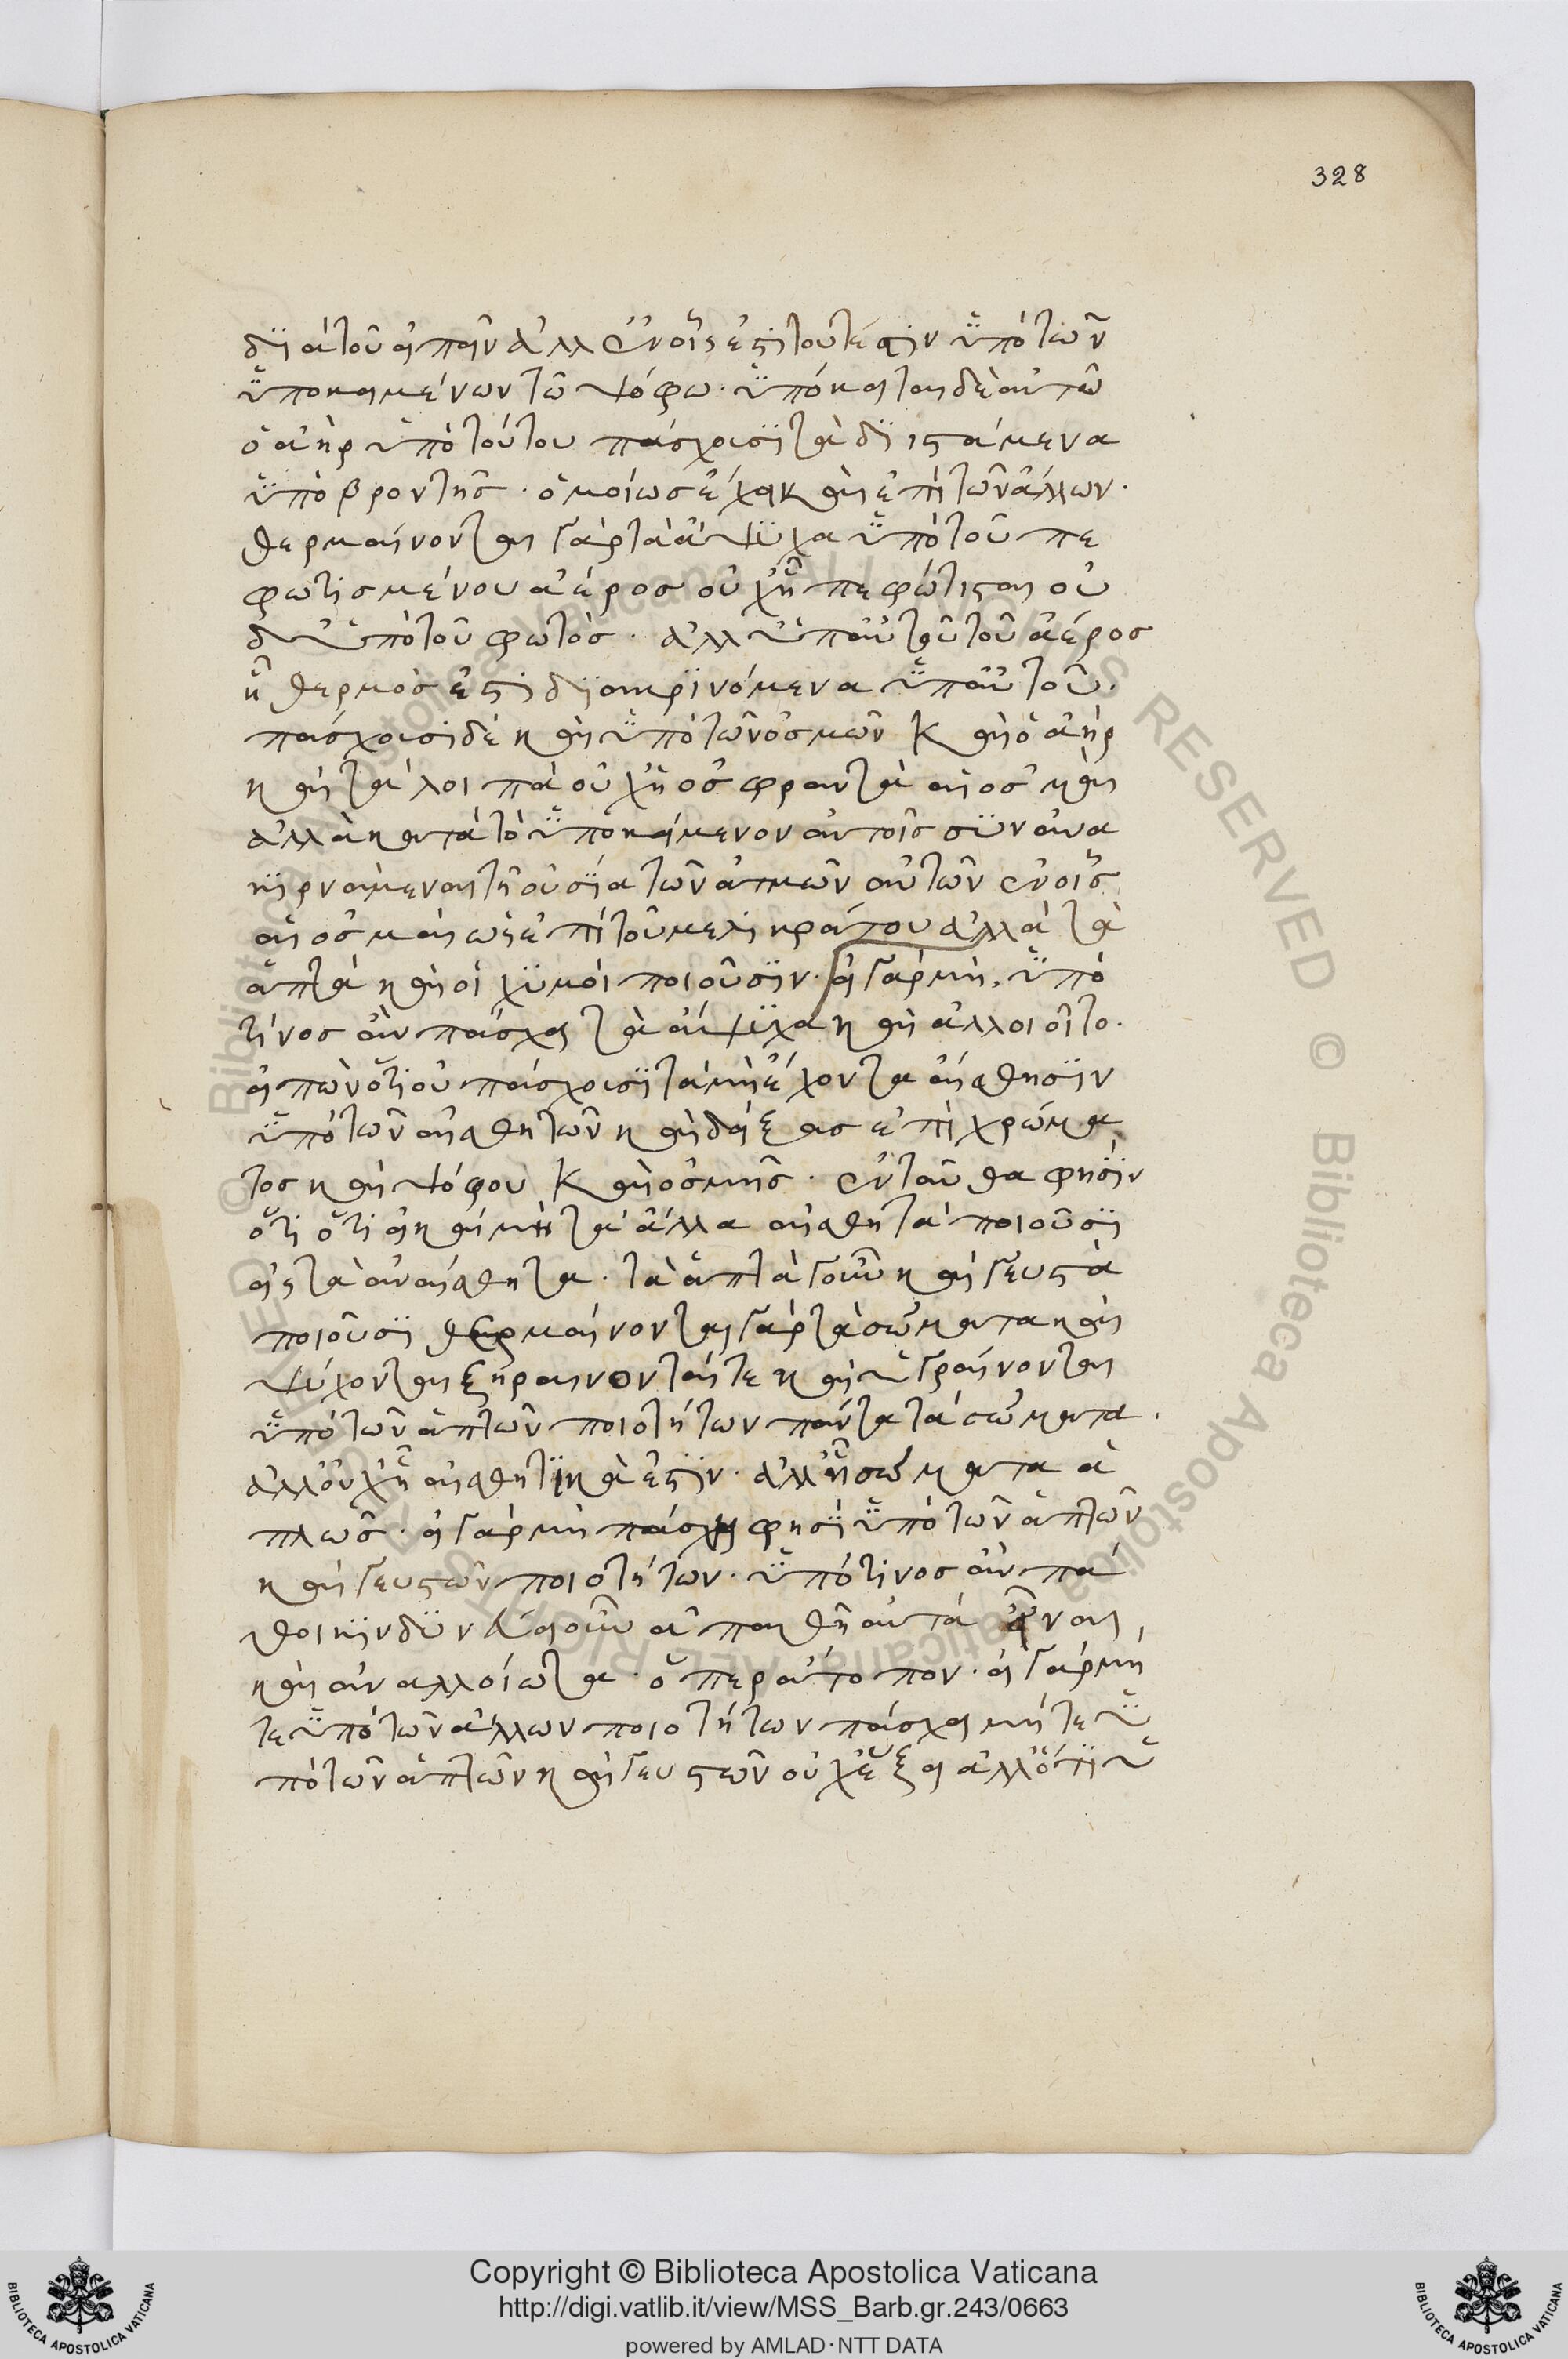 328
διὰ τοῦ εἰπεῖν ἀλλ' ἐν οἷς ἐστὶ τουτέστιν ὑπὸ τῶν
ὑποκειμένων τῶ ψόφω. ὑπόκειται δὲ αὐτῶ
ὁ ἀὴρ ὑπὸ τούτου πάσχουσι τὰ διιστάμενα
ὑπὸ βροντῆς. ὁμοίως ἔχει καὶ ἐπὶ τῶν ἄλλων.
θερμαίνονται γὰρ τὰ ἄψυχα ὑπὸ τοῦ πε
φωτισμένου ἀέρος οὐχ ἧ πεφώτισται οὐ
δ' ὑπὸ τοῦ φωτός. ἀλλ' ὑπ' αὐτοῦ τοῦ ἀέρος
ἧ θερμός ἐστι διακρινόμενα ὑπ' αὐτοῦ.
πάσχουσι δὲ καὶ ὑπὸ τῶν ὀσμῶν καὶ ὁ ἀὴρ
καὶ τὰ λοιπὰ οὐχ ἧ ὀσφραντὰ αἱ ὀσμαὶ
ἀλλὰ κατὰ τὸ ὑποκείμενον αὐτοῖς συνανα
κιρνάμεναι τῆ οὐσία τῶν ἀτμῶν αὐτῶν ἐν οἷς
αἱ ὀσμαὶ ὡς ἐπὶ τοῦ μελικράτου ἀλλὰ τὰ
ἁπτὰ καὶ οἱ χυμοὶ ποιοῦσιν. εἰ γὰρ μὴ, ὑπὸ
τίνος ἂν πάσχει τὰ ἄψυχα καὶ ἀλλοιοῖτο.
εἰπὼν ὅτι οὐ πάσχουσι τὰ μὴ ἔχοντα αἴσθησιν
ὑπὸ τῶν αἰσθητῶν καὶ δείξας ἐπὶ χρώμα
τος καὶ ψόφου καὶ ὀσμῆς. ἐνταῦθα φησὶν
ὅτι ὅτι εἰ καὶ μὴ τὰ ἄλλα αἰσθητὰ ποιοῦσι
εἰς τὰ ἀναίσθητα. τὰ ἁπτὰ γοῦν καὶ γευστὰ
ποιοῦσι θερμαίνονται γὰρ τὰ σώματα καὶ
ψύχονται ξηραίνονταί τε καὶ ὑγραίνονται
ὑπὸ τῶν ἁπτῶν ποιοτήτων πάντα τὰ σώματα.
ἀλλ' οὐχ ἧ αἰσθητικά ἐστιν. ἀλλ' ἧ σώματα ἁ
πλῶς. εἰ γὰρ μὴ πάσχη φησὶ ὑπὸ τῶν ἁπτῶν
καὶ γευστῶν ποιοτήτων. ὑπὸ τίνος ἂν πά
θοι κινδυνεύει οὖν ἀπαθῆ αὐτὰ εἶναι,
καὶ ἀναλλοίωτα. ὅπερ ἄτοπον. εἰ γὰρ μή
τε ὑπὸ τῶν ἄλλων ποιοτήτων πάσχει μήτε ὑ
πὸ τῶν ἁπτῶν καὶ γευστῶν οὐχ ἕξει ἄλλό τι ὑ
Copyright © Biblioteca Apostolica Vaticana
http://digi.vatlib.it/view/MSS_Barb.gr.243/0663
powered by AMLAD·NTT DATA